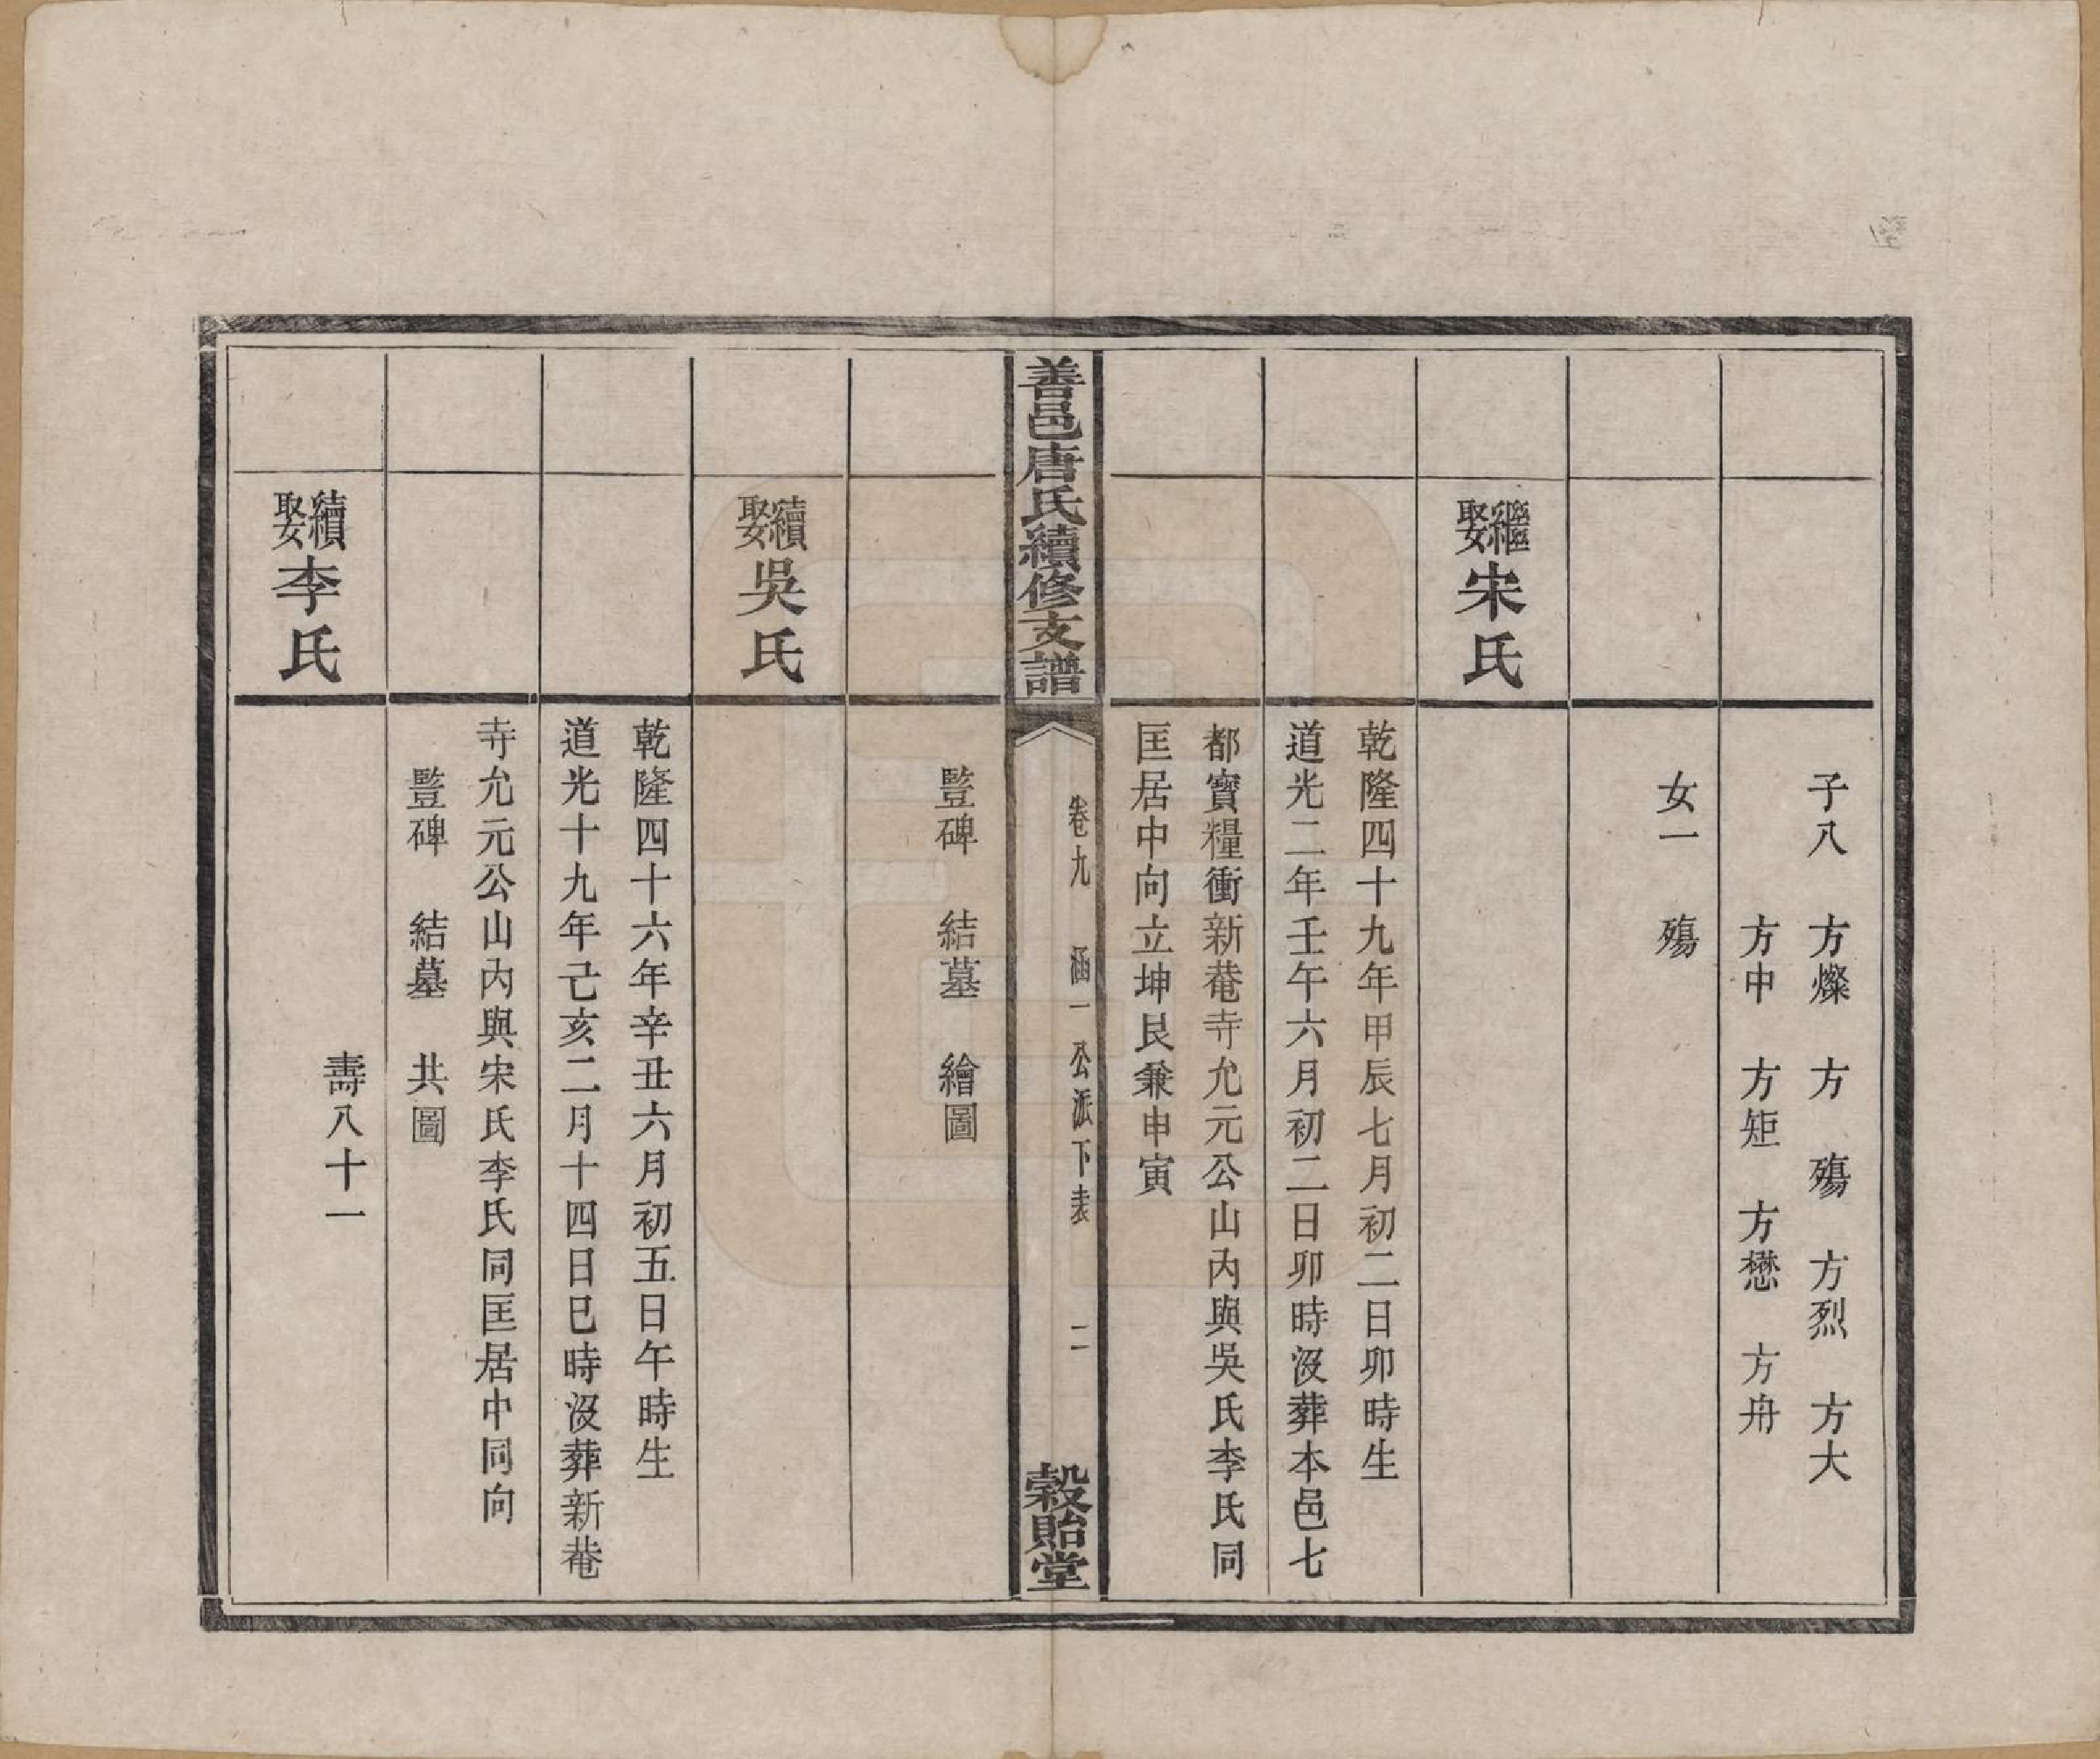 子八 方燦 方殤 方烈 方大
方中 方矩 方懋 方舟
女一 殤
繼娶宋氏
乾隆四十九年甲辰七月初二日卯時生
道光二年壬午六月初二日卯時沒葬本邑七
都寶糧衝新菴寺允元公山內與吳氏李氏同
匡居中向立坤艮兼申寅
善邑唐氏續修支譜
卷九 涵一公派下表 二
榖貽堂
豎碑 結墓 繪圖
續娶吳氏
乾隆四十六年辛丑六月初五日午時生
道光十九年己亥二月十四日巳時沒葬新菴
寺允元公山內與宋氏李氏同匡居中同向
豎碑 結墓 共圖
續娶李氏
壽八十一